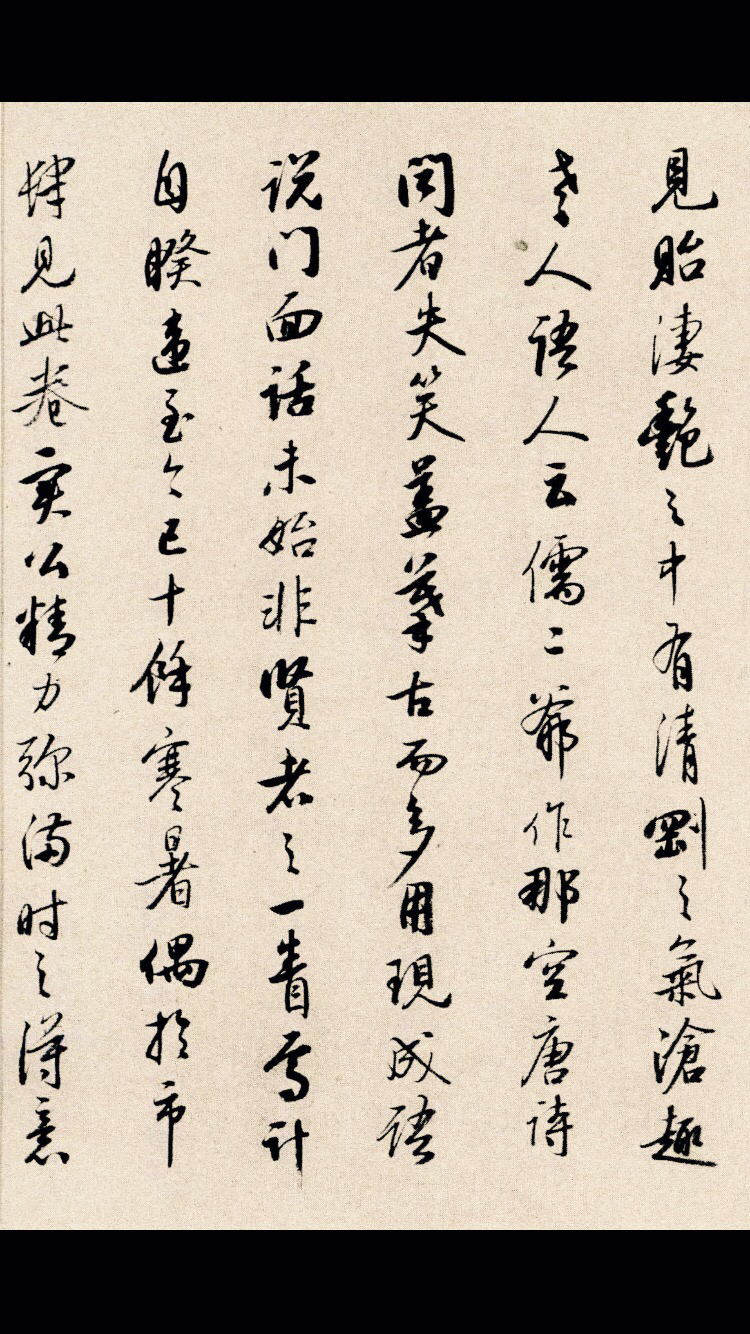 見貽淒艷之中有清剛之氣滄趣
老人語人云儒二爺作那空唐詩
聞者失笑蓋摹古而多用現成語
说门面话未始非賢者之一眚焉计
自睽違至今已十餘寒暑偶於市
肆見此卷实公精力弥满时之得意